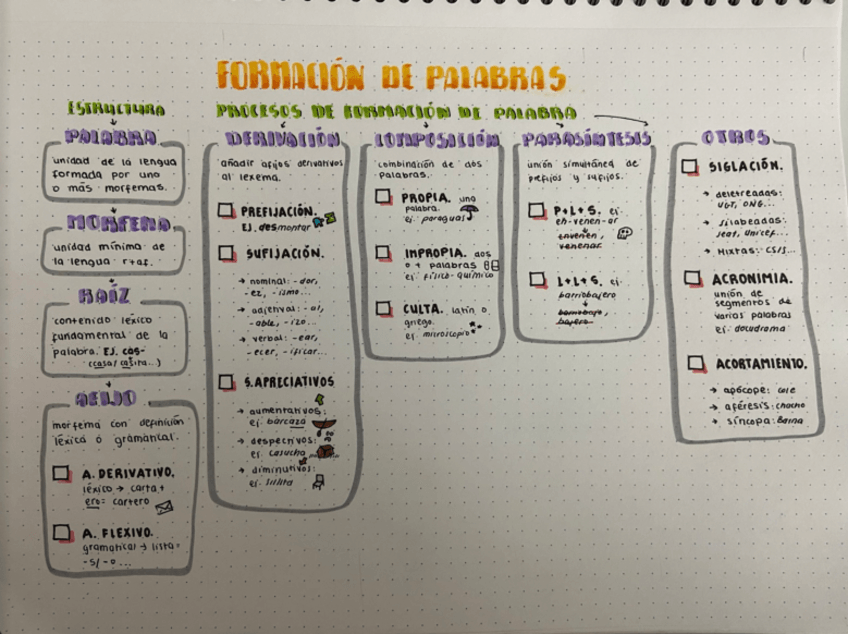 FORMACIÓN DE PALABRAS
ESTRUCTURA
PALABRA
unidad de la lengua
formada por uno
o más morfemas.
MORFEMA
unidad mínima de
la lengua r+af.
RAÍZ
contenido léxico
fundamental de la
palabra. EJ. cas-
(casa/casita...)
AFIJO
morfema con definición
léxica o gramatical.
A. DERIVATIVO.
léxico → carta +
ero = cartero
A. FLEXIVO.
gramatical → lista +
-s/-o...
PROCESOS DE FORMACIÓN DE PALABRA
DERIVACIÓN
añadir afijos derivativos
al lexema.
PREFIJACIÓN.
EJ. desmontar
SUFIJACIÓN.
→ nominal: -dor,
-ez, -ismo...
→ adjetival: -al,
-able, -izo...
→ verbal: -ear,
-ecer, -ificar...
S. APRECIATIVOS
→ aumentativos:
ej. barcaza
→ despectivos:
ej. casucha
→ diminutivos:
ej. sillita
COMPOSICIÓN
combinación de dos
palabras.
PROPIA. una
palabra.
ej. paraguas
IMPROPIA. dos
o + palabras
ej. físico-químico
CULTA. latín o
griego.
ej. microscopio
PARASÍNTESIS
unión simultánea de
prefijos y sufijos.
P+L+S. ej.
en-venen-ar
envenen,
venenar
L+L+S. ej.
barriobajero
barriobajo,
bajero
OTROS
SIGLACIÓN.
→ deletreadas:
UGT, ONG...
→ silabeadas:
Seat, Unicef...
→ Mixtas: CSIS...
ACRONIMIA.
unión de
segmentos de
varias palabras
ej. docudrama
ACORTAMIENTO.
→ apócope: cole
→ aféresis: chacho
→ síncopa: Barna